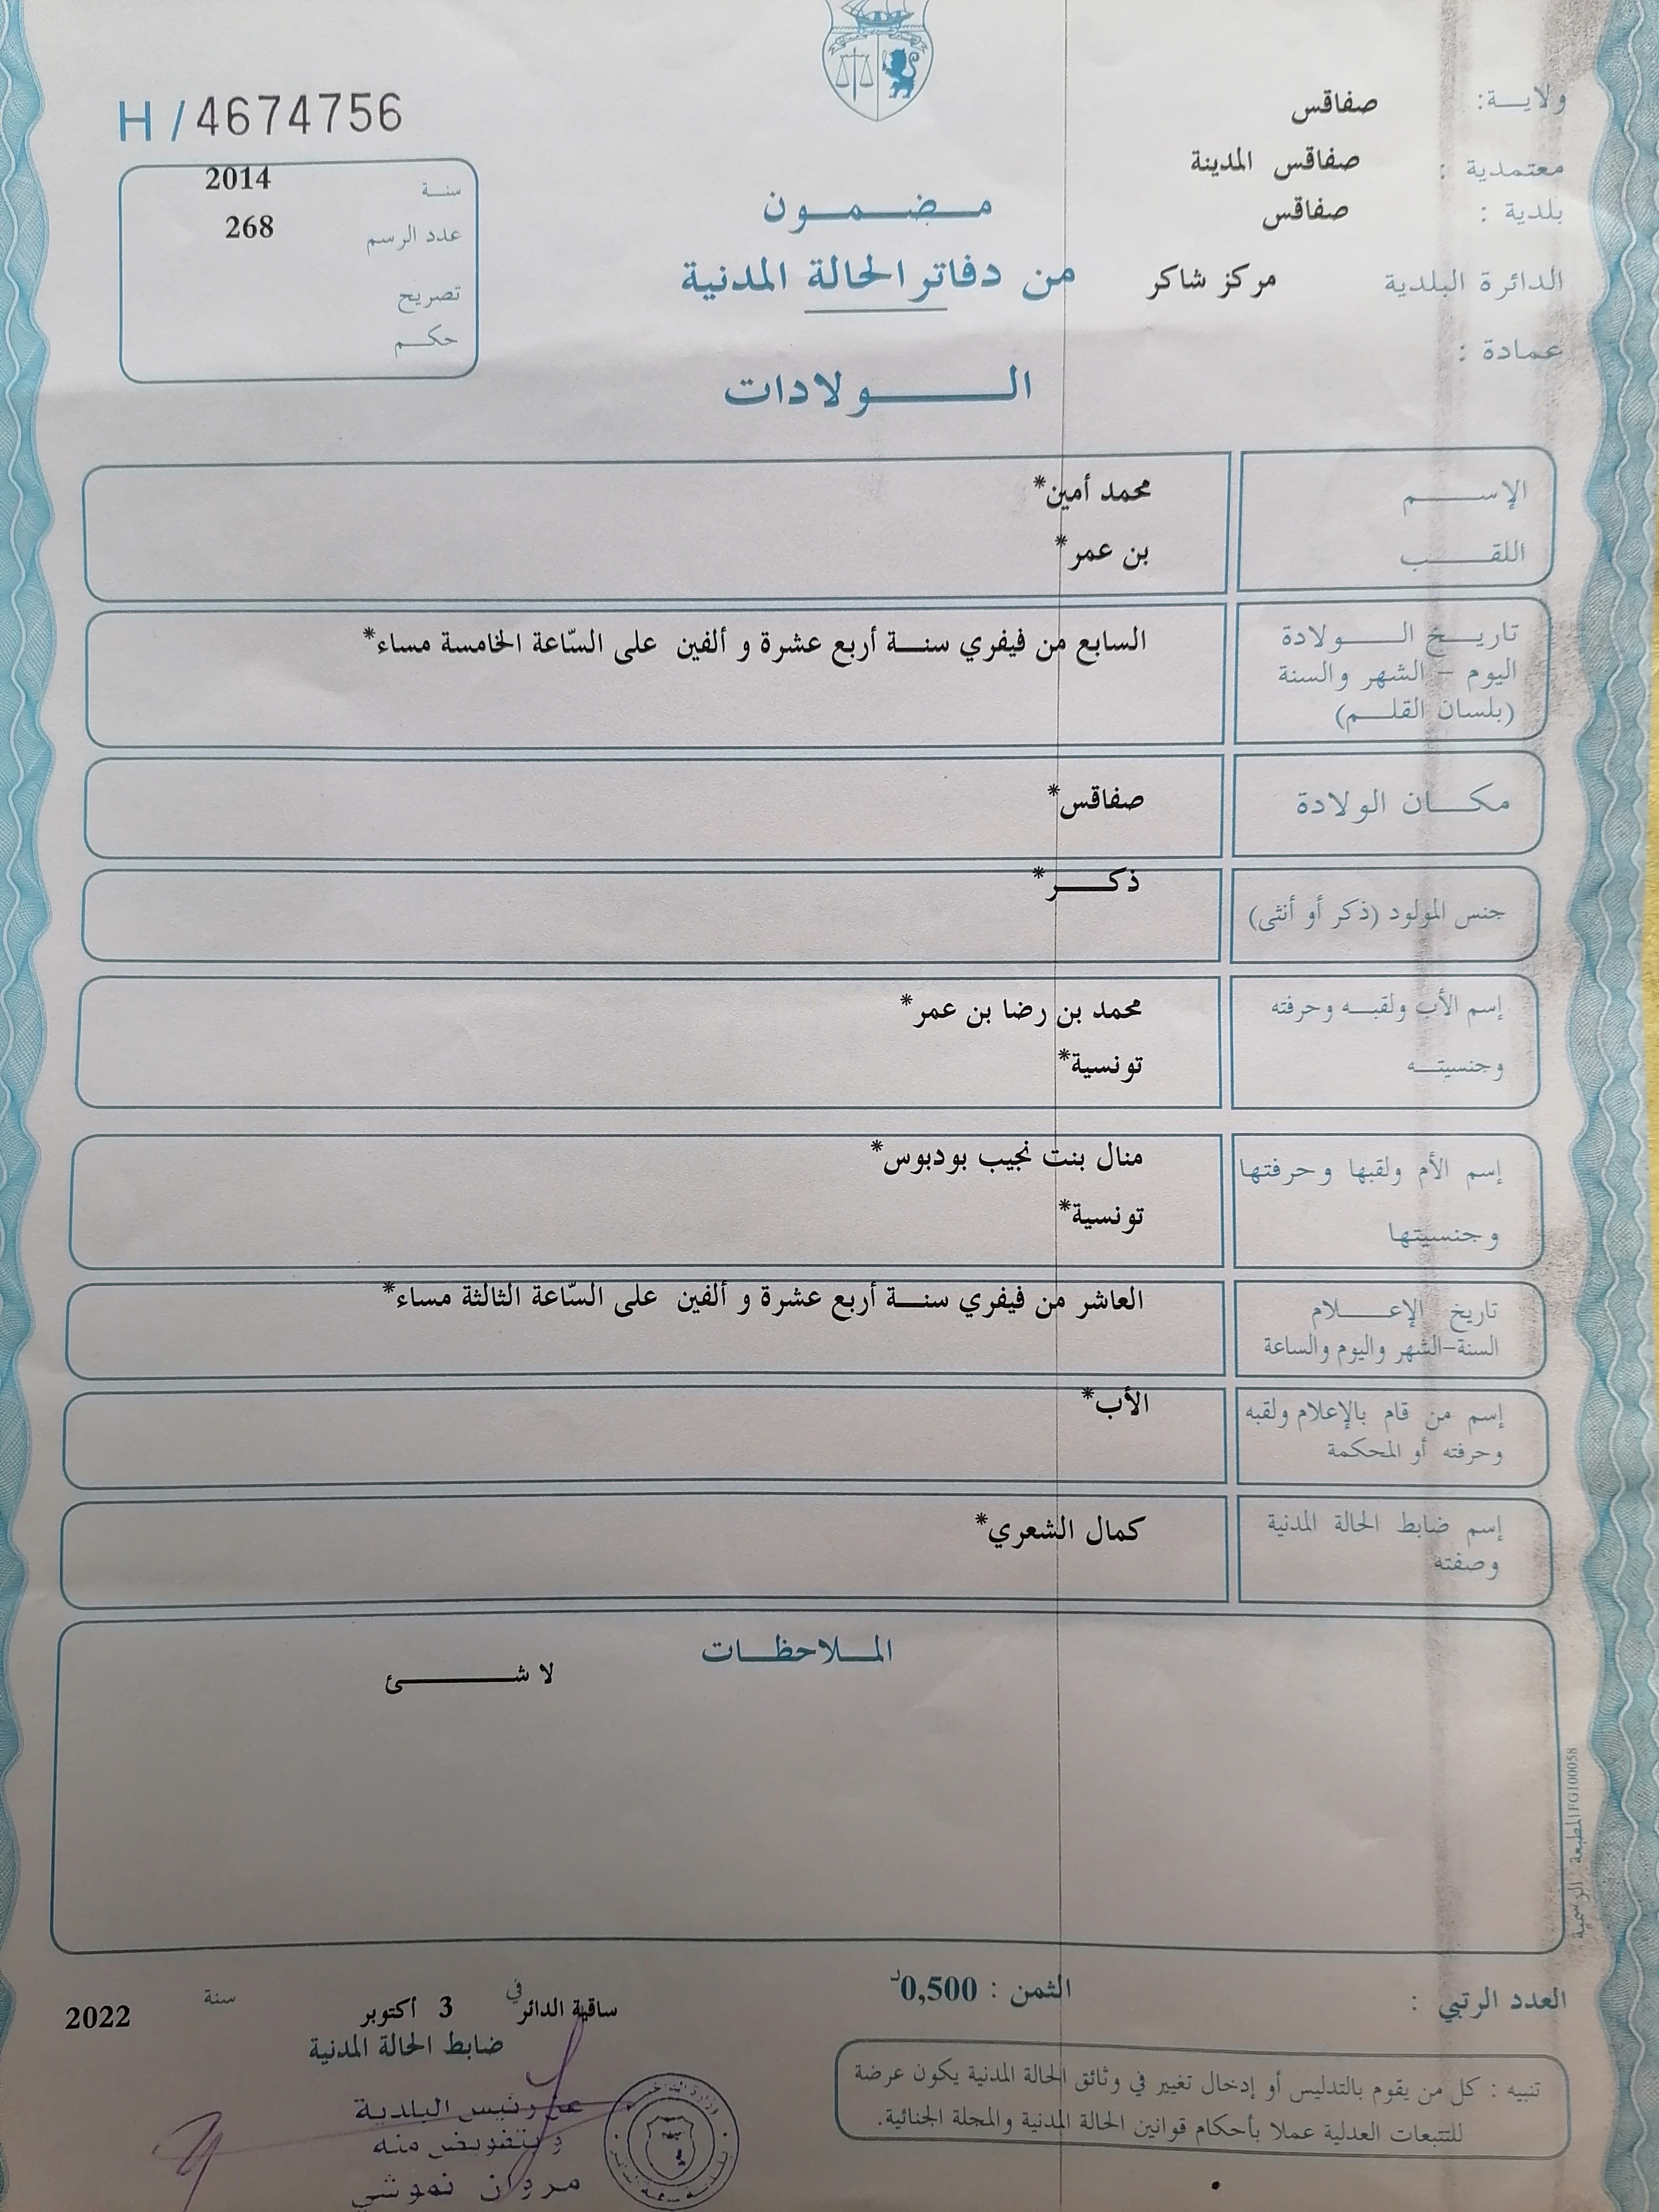 H/4674756
ولاية: صفاقس
معتمدية : صفاقس المدينة
بلدية : صفاقس
الدائرة البلدية مركز شاكر
عمادة :
مضمون
من دفاتر الحالة المدنية
الولادات
سنة 2014
عدد الرسم 268
تصريح
حكم
الإسم محمد أمين*
اللقب بن عمر*
تاريخ الولادة السابع من فيفري سنة أربع عشرة و ألفين على السّاعة الخامسة مساء*
اليوم - الشهر والسنة
(بلسان القلم)
مكان الولادة صفاقس*
جنس المولود (ذكر أو أنثى) ذكر*
إسم الأب ولقبه وحرفته محمد بن رضا بن عمر*
وجنسيته تونسية*
إسم الأم ولقبها وحرفتها منال بنت نجيب بودبوس*
وجنسيتها تونسية*
تاريخ الإعلام العاشر من فيفري سنة أربع عشرة و ألفين على السّاعة الثالثة مساء*
السنة-الشهر واليوم والساعة
إسم من قام بالإعلام ولقبه الأب*
وحرفته أو المحكمة
إسم ضابط الحالة المدنية كمال الشعري*
وصفته
الملاحظات
لا شئ
المطبعة الرسمية FG100058
العدد الرتبي :
الثمن : 0,500د
ساقية الدائر في 3 أكتوبر سنة 2022
ضابط الحالة المدنية
عن رئيس البلدية
وبتفويض منه
مروان نموشي
تنبيه : كل من يقوم بالتدليس أو إدخال تغيير في وثائق الحالة المدنية يكون عرضة
للتتبعات العدلية عملا بأحكام قوانين الحالة المدنية والمجلة الجنائية.